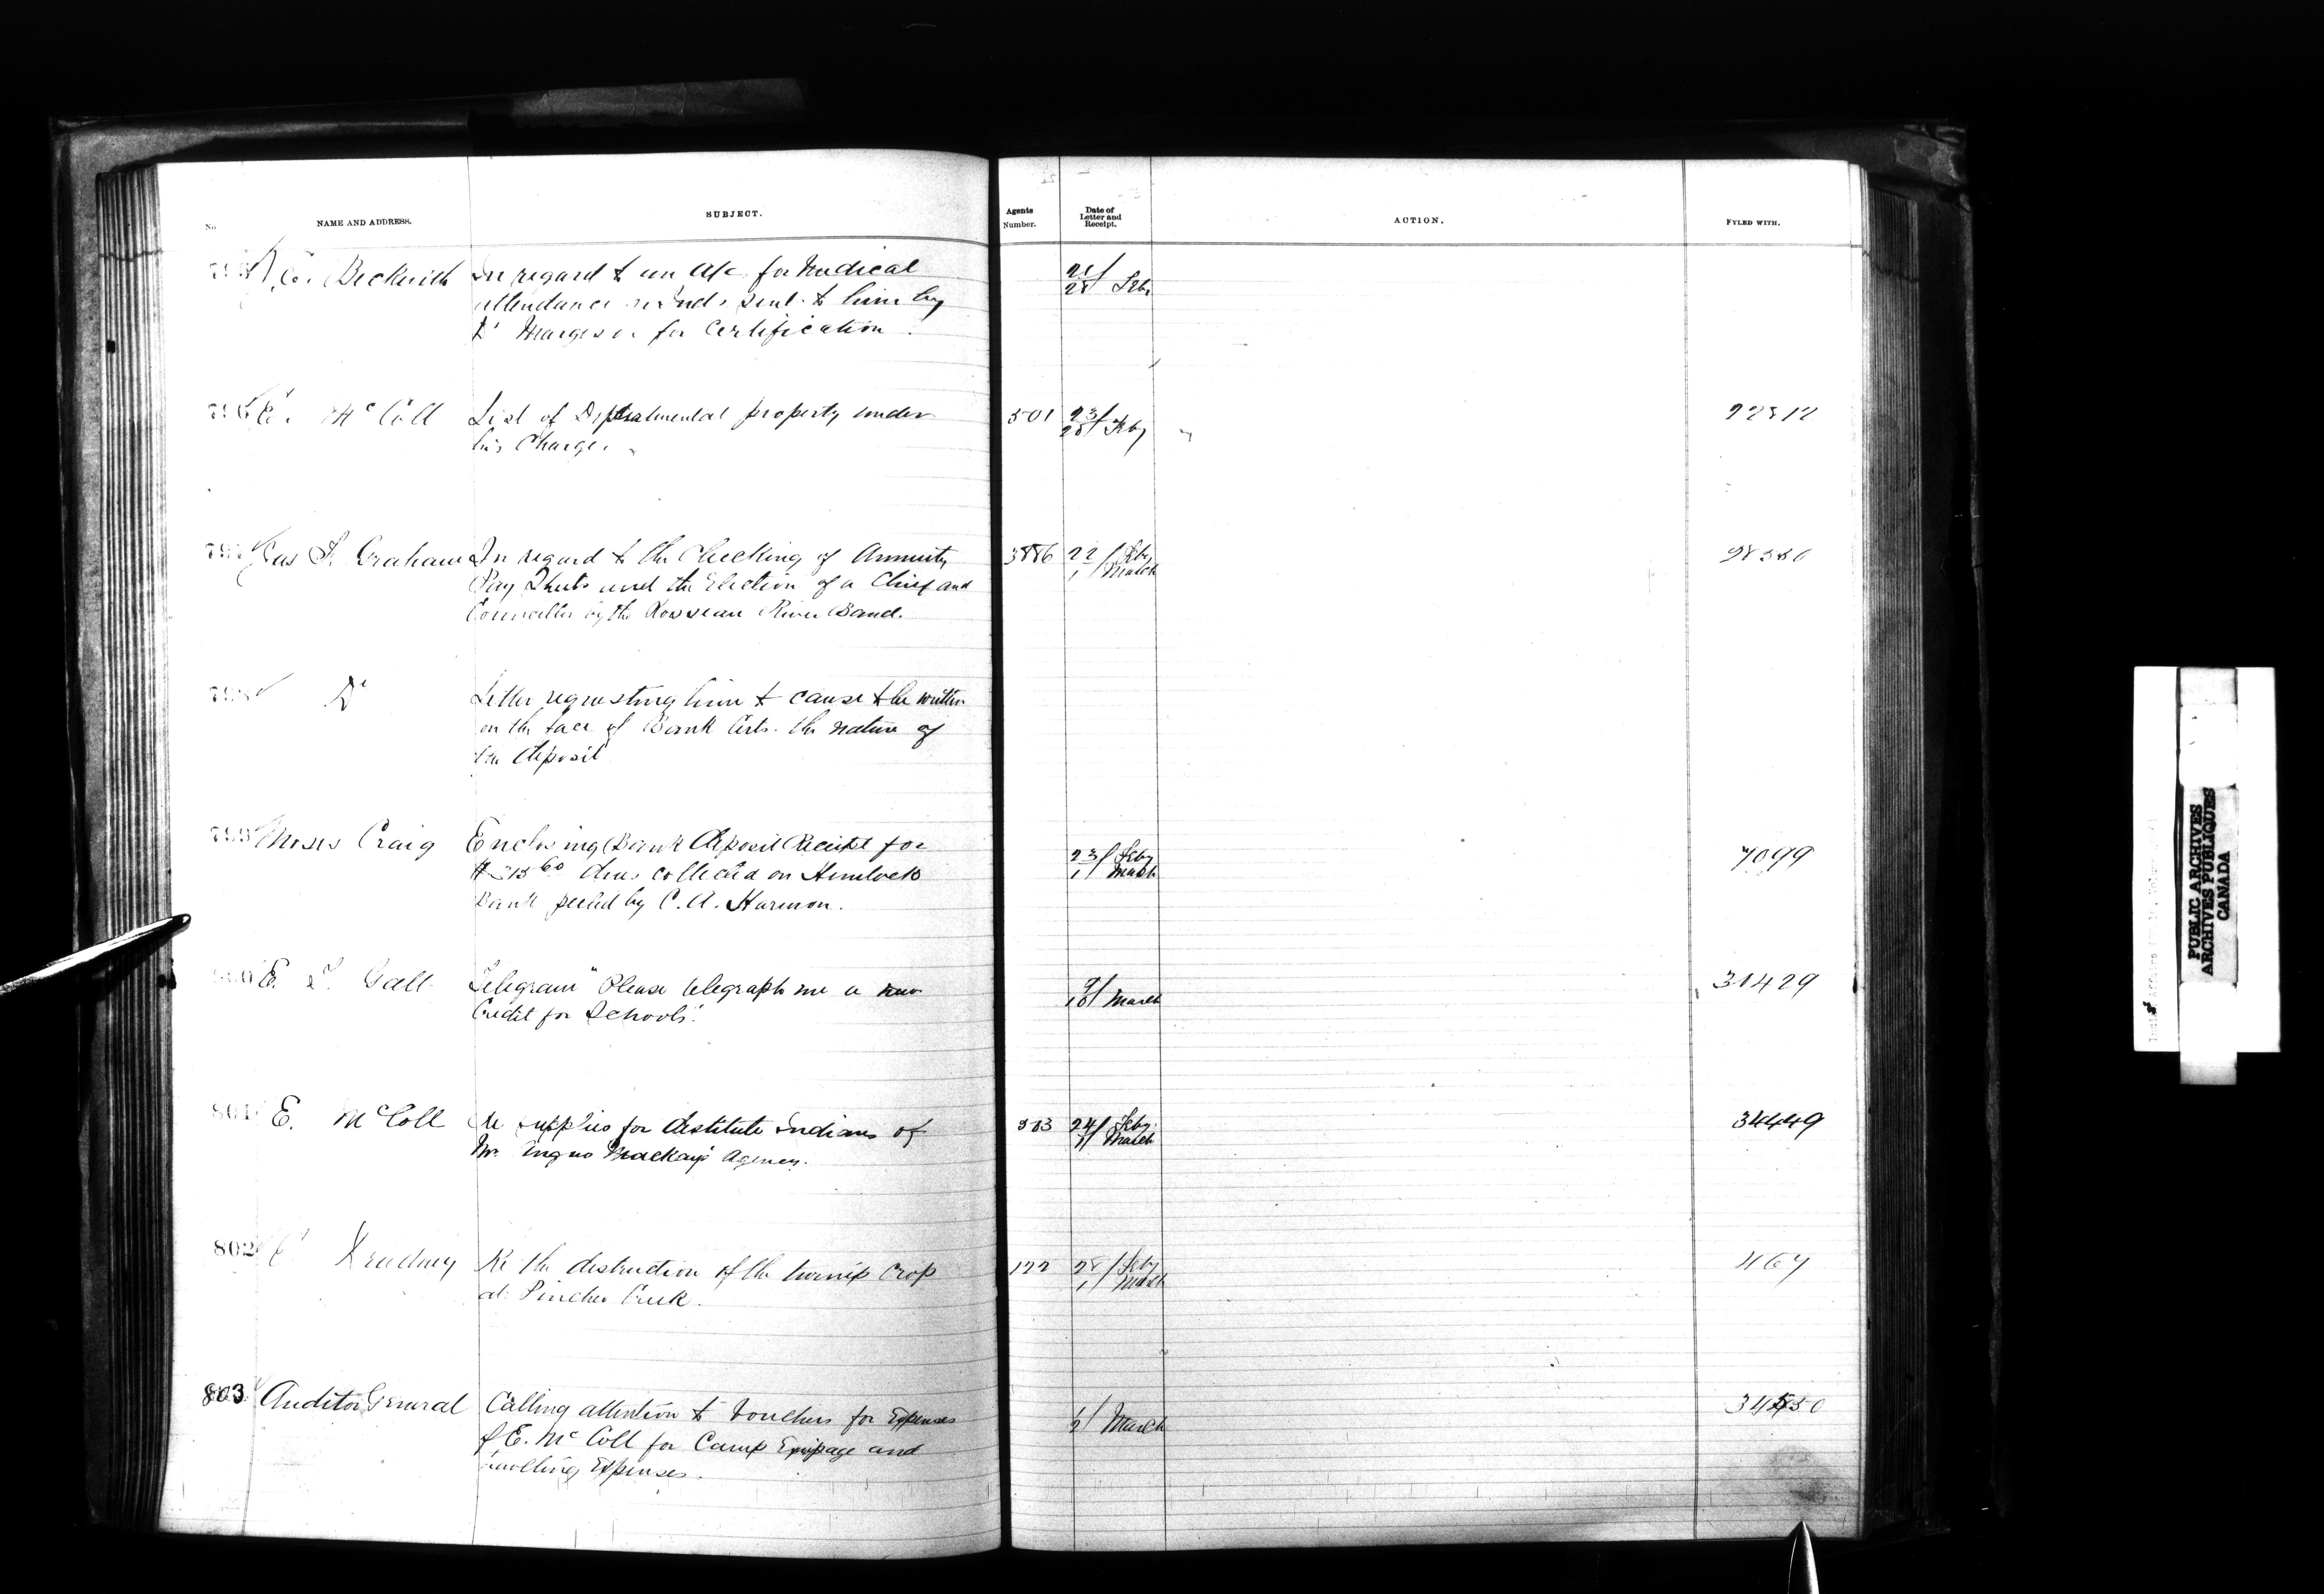 No.
NAME AND ADDRESS.
SUBJECT.
Agents
Number.
Date of
Letter and
Receipt.
ACTION.
FYLED WITH.
Beckwith In regard to an a/c for Medical
attendance sent to him by
Dr Margeson for Certification.
28 Feby
796 E. McColl List of Departmental property under
his Charge.
501 23/28 Feby 22512
797 Jas F. Graham In regard to the Checking of Annuity
Pay Sheets and the Election of a Chief and
Councillor by the Rosseau River Band.
3886 22/1 Feby March
798 Do Letter requesting him to cause to be written
on the face of Bank Certs. the nature of
the deposit
799 Moses Craig Enclosing Bank Deposit Receipt for
collected on Hemlock
Bark peeled by C. A. Harmon.
23/1 Feby March 7099
E. T. Galt Telegram "Please telegraph me a new
Credit for Schools".
9/10 March 31429
801 E. McColl Re supplies for destitute Indians of
Mr. Angus Mackay's Agency.
24/1 Feby March 34449
802 Re the destruction of the turnip Crop
at Pincher Creek.
122 28/1 Feby March 1167
803 Auditor General Calling attention to Vouchers for Expenses
of E. McColl for Camp Equipage and
travelling Expenses.
1/2 March
PUBLIC ARCHIVES
ARCHIVES PUBLIQUES
CANADA